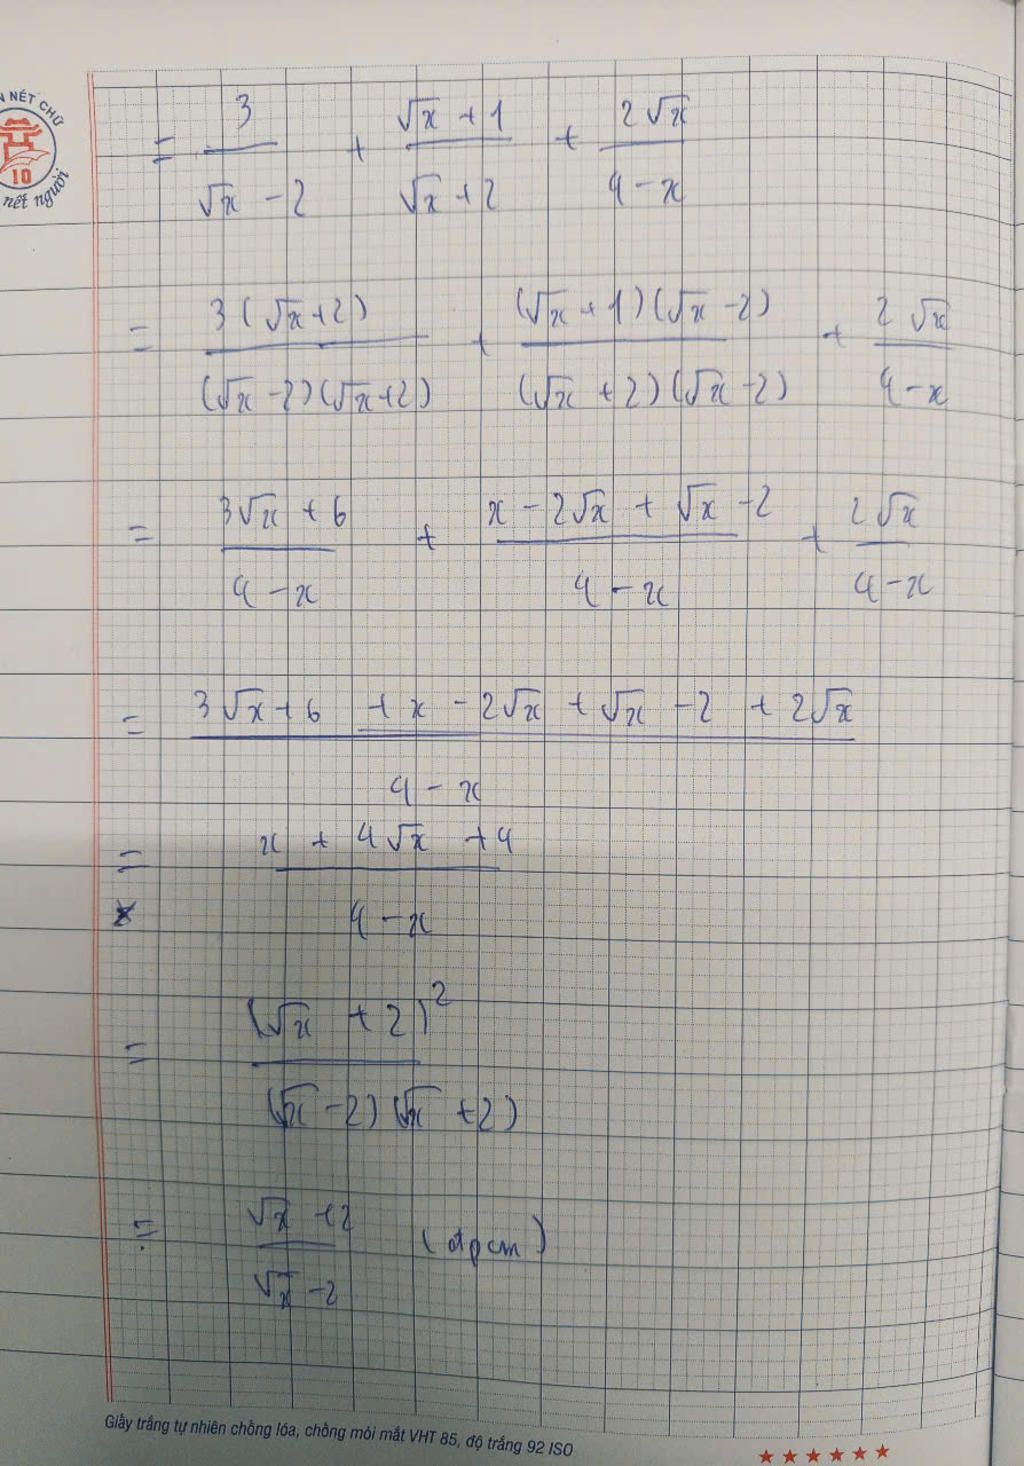 N NÉT CHỮ
10
nết người
= 3/(√x - 2) + (√x + 1)/(√x + 2) + 2√x/(4 - x)
= 3(√x + 2)/((√x - 2)(√x + 2)) + (√x + 1)(√x - 2)/((√x + 2)(√x - 2)) + 2√x/(4 - x)
= (3√x + 6)/(4 - x) + (x - 2√x + √x - 2)/(4 - x) + 2√x/(4 - x)
= (3√x + 6 + x - 2√x + √x - 2 + 2√x)/(4 - x)
= (x + 4√x + 4)/(4 - x)
= (√x + 2)²/((√x - 2)(√x + 2))
= (√x + 2)/(√x - 2) (đpcm)
Giấy trắng tự nhiên chống lóa, chống mỏi mắt VHT 85, độ trắng 92 ISO